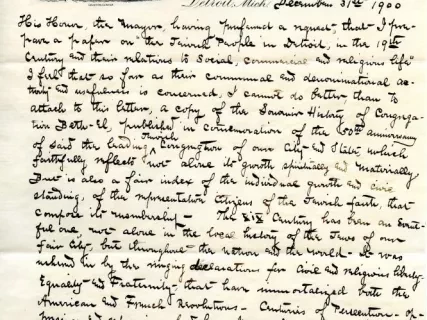 Detroit, Mich. December 31st 1900
His Honor, the Mayor, having preferred a request, that I pre-
pare a paper on "the Jewish People in Detroit, in the 19th
Century and their relations to Social, commercial and religious life"
I feel that so far as their communal and denominational ac-
tivity and usefulness is concerned, I cannot do better, than to
attach to this letter, a copy of the Souvenir History of Congrega-
tion Beth-El, published in comemoration of the 50th anniversary
of said the leading Jewish Congregation of our City and State, which
faithfully reflects not alone its growth spiritually and materially
But is also a fair index of the individual growth and civic
standing, of the representative Citizens of the Jewish faith, that
compose its membership – The XIX Century has been an event-
ful one, not alone in the local history of the Jews of our
fair City, but throughout the nation and the world – it was
ushered in by the ringing declarations for Civil and religious liberty–
Equality and Fraternity– that have immortalized both the
American and French Revolutions – Centuries of Persecution – of